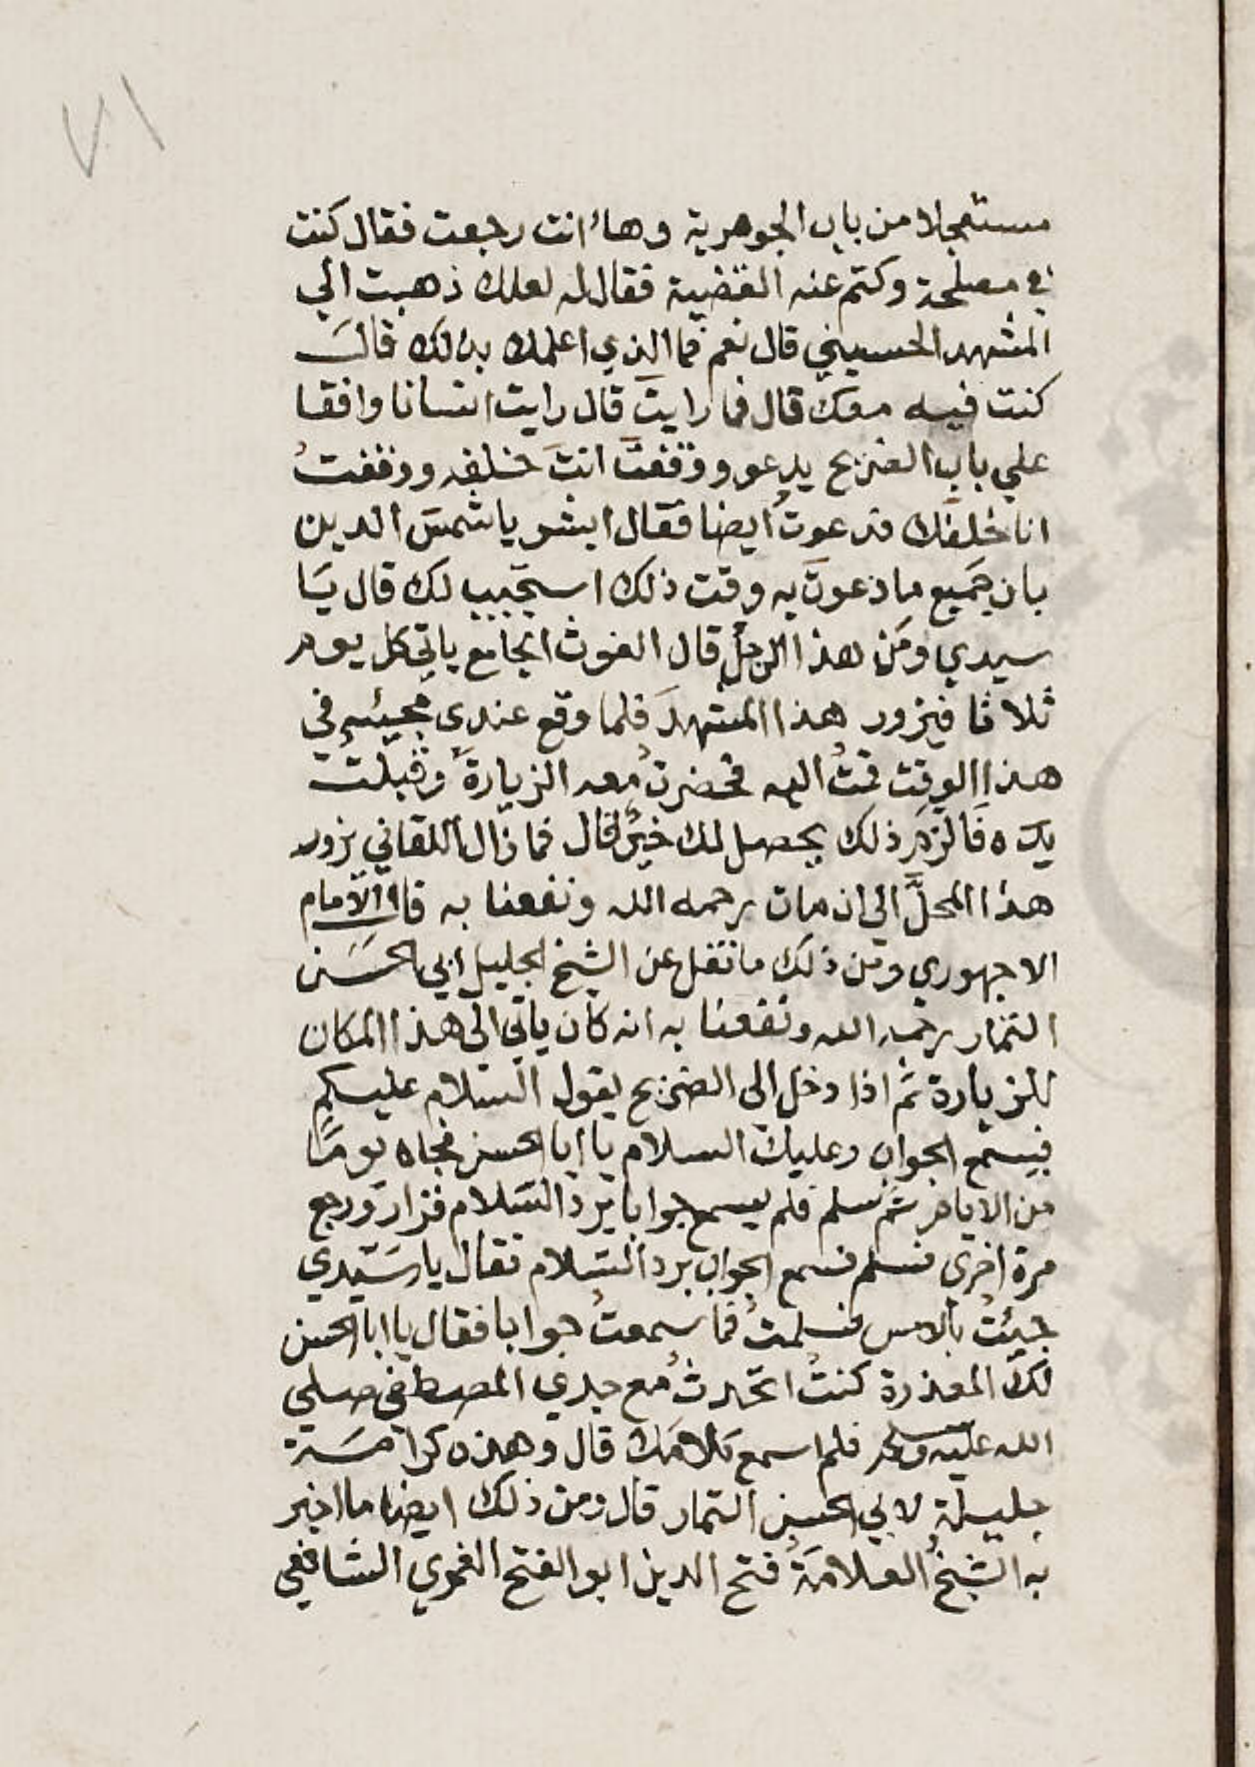 ٧١
مستعجلا من باب الجوهرية وها انت رجعت فقال كنت
في مصلحة وكتم عنه القضية فقال له لعلك ذهبت الي
المشهد الحسيني قال نعم فما الذي اعلمك بذلك قالَ
كنت فيه معك قال فما رايتَ قال رايت انسانا واقفا
علي باب الضريح يدعو ووقفتَ انتَ خلفه ووقفتُ
انا خلفك فدعوتُ ايضا فقال ابشر يا شمسَ الدين
بان جميع ما دعوتَ به وقت ذلك استجيب لك قال يَا
سيدي ومَن هذا الرجلُ قال الغوث الجامع ياتي كل يوم
ثلاثا فيزور هذا المشهدَ فلما وقع عندي مجيئه في
هذا الوقت قمتُ اليه فحضرتُ معه الزيارةَ وقبلتُ
يدَه فالزم ذلك يحصل لك خيرٌ قال فما زال اللقاني يزور
هذا المحلَّ الي ان مات رحمه الله ونفعنا به قال الامام
الاجهوري ومن ذلك ما نقل عن الشيخ الجليل ابي الحسَن
التمار رحمه الله ونفعنا به انه كان ياتي الى هذا المكان
للزيارة ثم اذا دخل الى الضريح يقول السلام عليكم
فيسمع الجواب وعليك السلام يا ابا الحسن فجاه يومًا
من الايام ثم سلم فلم يسمع جوابا برد السلام فزار ورجع
مرة اخرى فسلم فسمع الجواب برد السلام فقال يا سَيّدي
جيئتُ بالامس فسلمتُ فما سمعتُ جوابا فقال يا ابا الحسن
لك المعذرة كنتُ اتحدثُ مع جدي المصطفى صلي
الله عليه وسلم فلم اسمع كلامَك قال وهذه كرامَة
جليلة لابي الحسن التمار قال ومن ذلك ايضا ما اخبر
به الشيخُ العلامَةُ فتح الدين ابو الفتح الغمري الشافعي